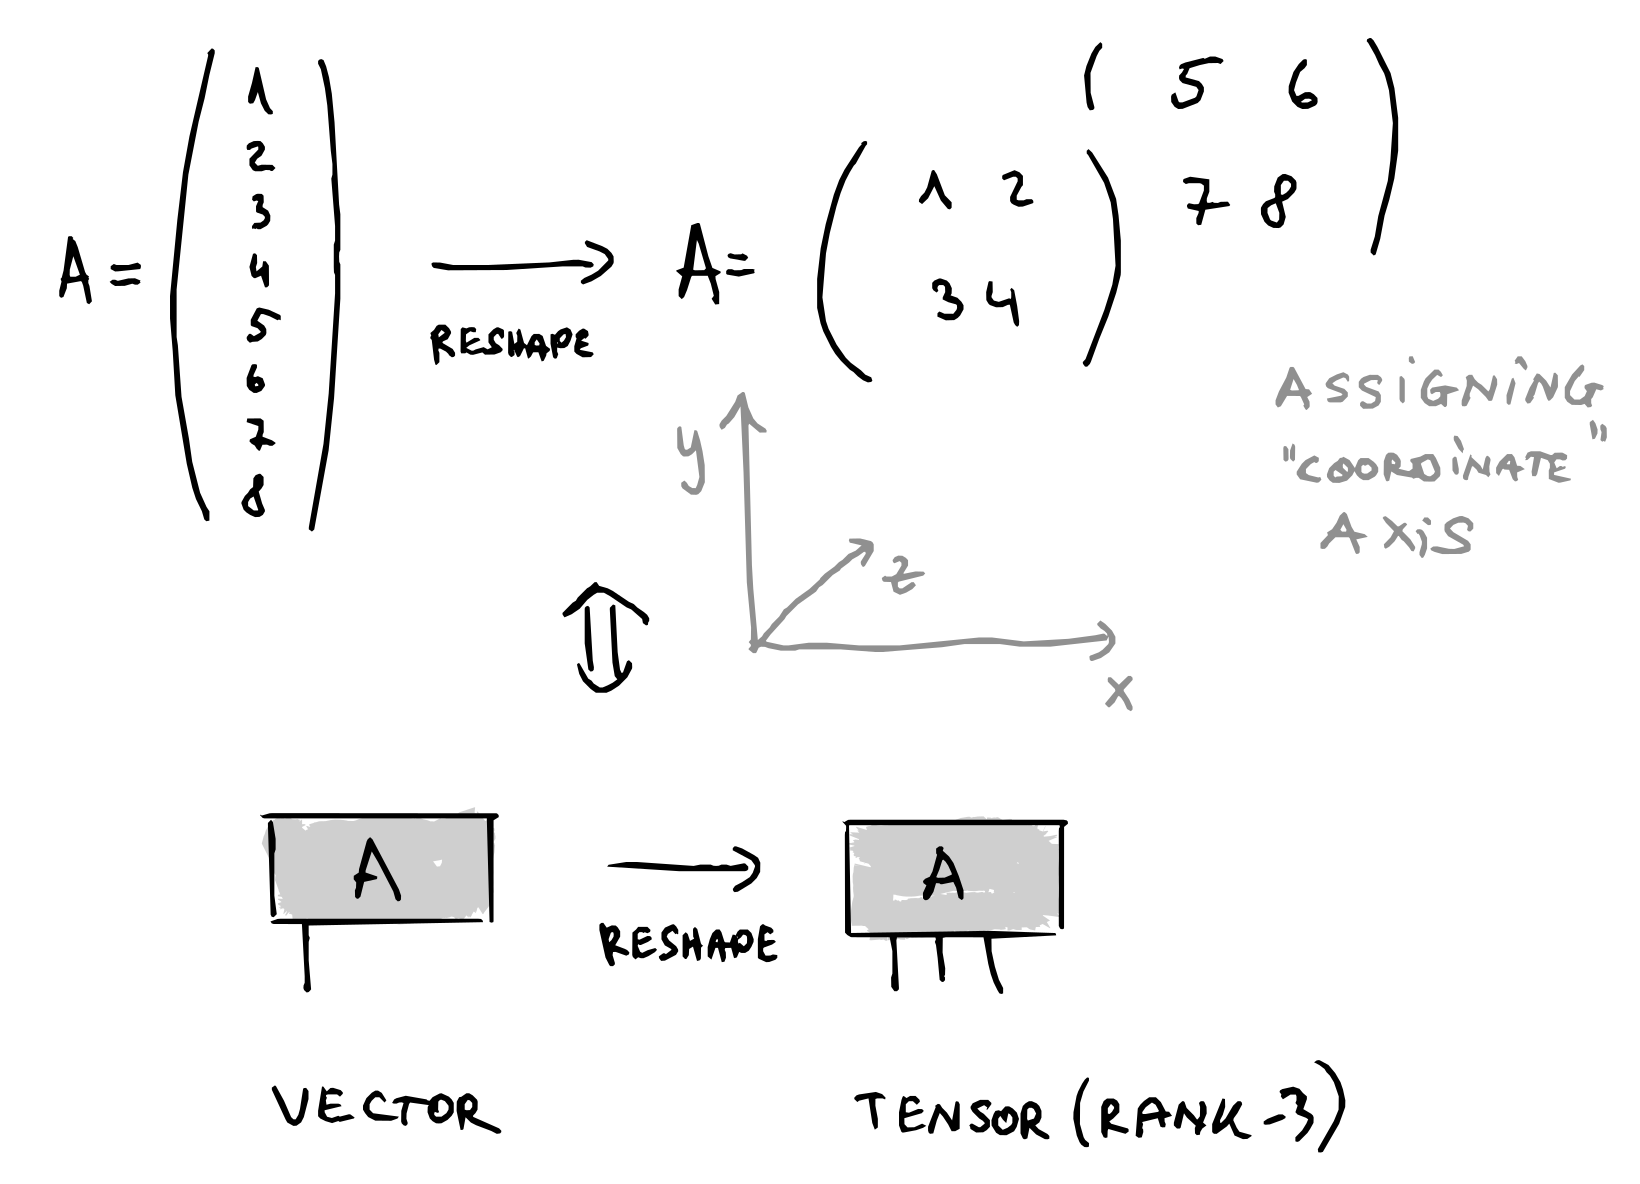 A =
1
2
3
4
5
6
7
8
RESHAPE
A=
1 2
3 4
5 6
7 8
y
z
x
ASSIGNING
"COORDINATE"
AXIS
A
RESHAPE
A
VECTOR
TENSOR (RANK-3)